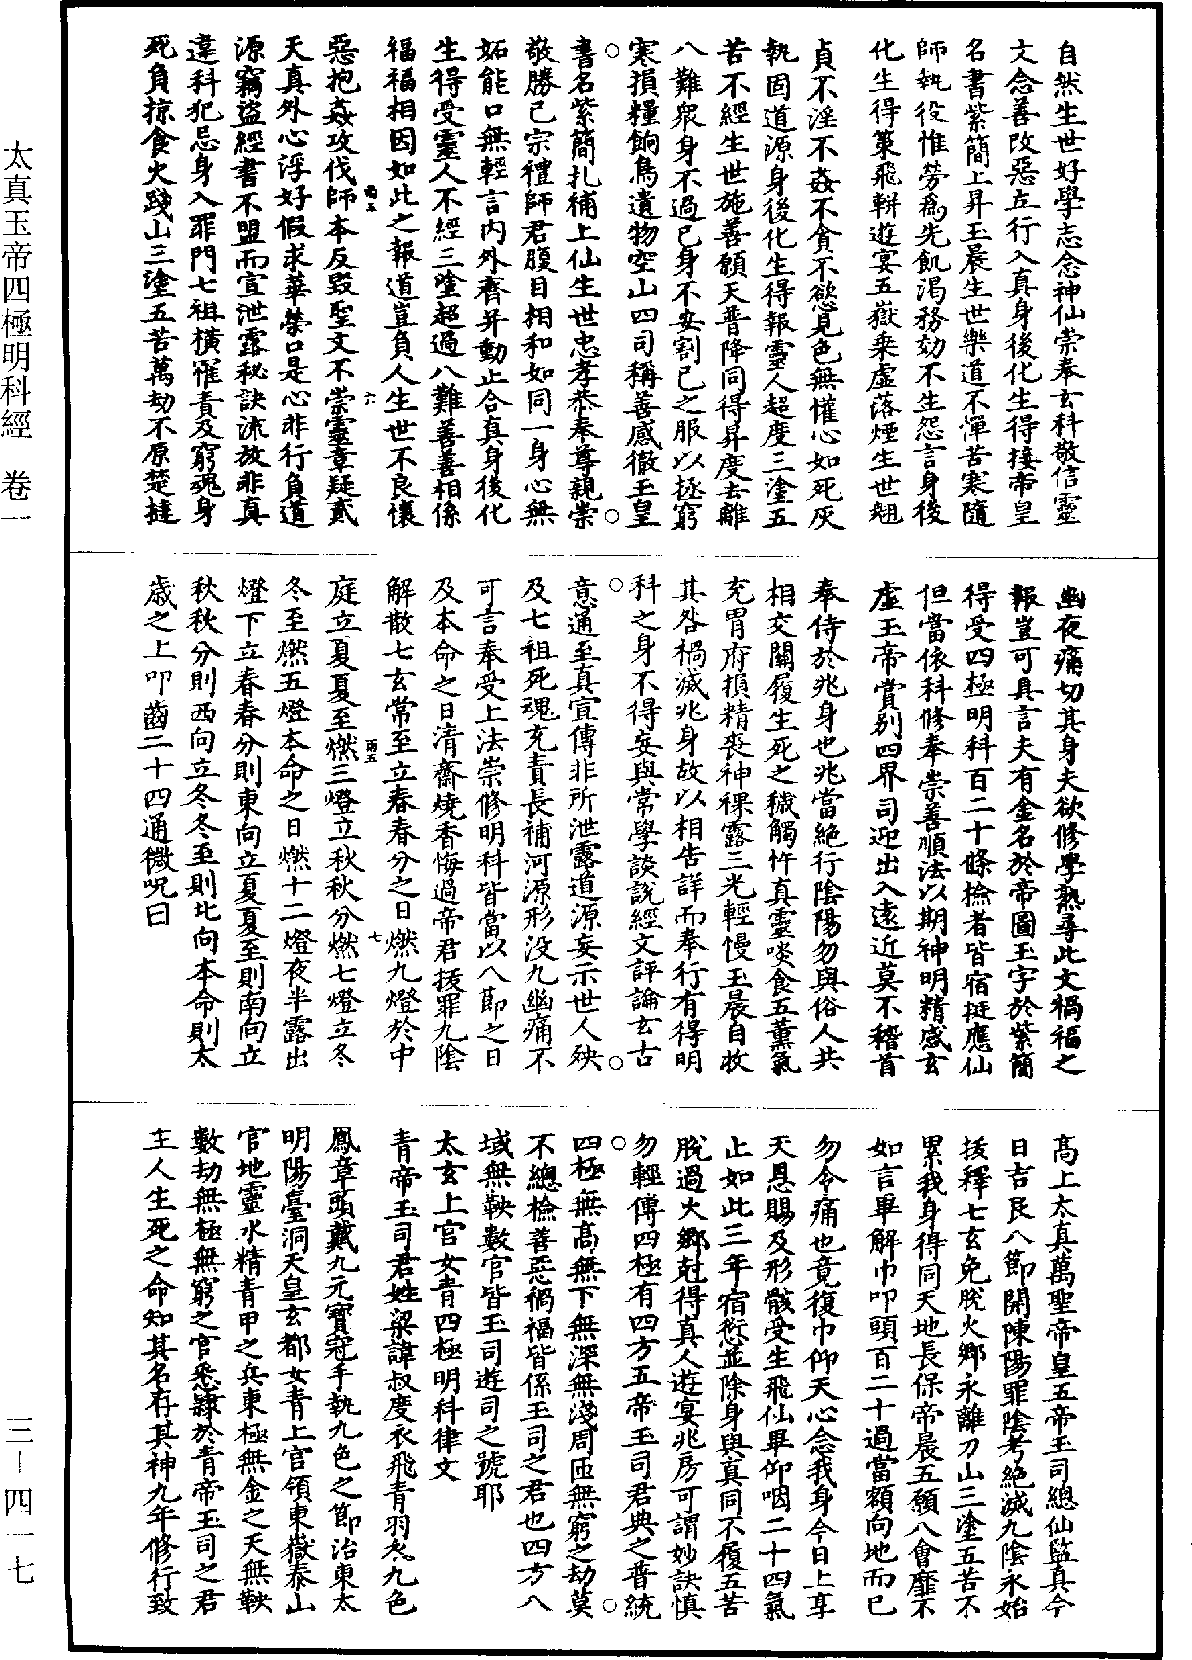 太真玉帝四極明科經　卷一
三－四一七
自然生世好學志念神仙崇奉玄科敬信靈
文念善改惡立行入真身後化生得接帝皇
名書紫簡上昇玉晨生世樂道不憚苦寒隨
師執役惟勞為先飢渴務効不生怨言身後
化生得策飛輧遊宴五嶽乘虛落煙生世翹
貞不淫不姦不貪不慾見色無懽心如死灰
執固道源身後化生得報靈人超度三塗五
苦不經生世施善願天普降同得昇度去離
八難眾身不過己身不安割己之服以拯窮
寒損糧餉鳥遺物空山四司稱善感徹玉皇
書名紫簡扎補上仙生世忠孝恭奉尊親崇
敬勝己宗禮師君腹目相和如同一身心無
妬能口無輕言內外齊并動止合真身後化
生得受靈人不經三塗超過八難善善相係
福福相因如此之報道豈負人生世不良懷
惡抱姦攻伐師本反毀聖文不崇靈章疑貳
天真外心浮好假求華榮口是心非行負道
源竊盜經書不盟而宣泄露秘訣流放非真
違科犯忌身入罪門七祖橫罹責及窮魂身
死負掠食火踐山三塗五苦萬劫不原楚撻
幽夜痛切其身夫欲修學熟尋此文禍福之
報豈可具言夫有金名於帝圖玉字於紫簡
得受四極明科百二十條檢者皆宿挺應仙
但當依科修奉崇善順法以期神明精感玄
虛玉帝賞別四界司迎出入遠近莫不稽首
奉侍於兆身也兆當絕行陰陽勿與俗人共
相交關履生死之穢觸忤真靈啖食五薰氣
充胃府損精喪神裸露三光輕慢玉晨自收
其咎禍滅兆身故以相告詳而奉行有得明
科之身不得妄與常學談說經文評論玄古
意通至真宣傳非所泄露道源妄示世人殃
及七祖死魂充責長補河源形没九幽痛不
可言奉受上法崇修明科皆當以八節之日
及本命之日清齋燒香悔過帝君拔罪九陰
解散七玄常至立春春分之日燃九燈於中
庭立夏夏至燃三燈立秋秋分燃七燈立冬
冬至燃五燈本命之日燃十二燈夜半露出
燈下立春春分則東向立夏夏至則南向立
秋秋分則西向立冬冬至則北向本命則太
歲之上叩齒二十四通微呪曰
高上太真萬聖帝皇五帝玉司總仙監真今
日吉良八節開陳陽罪陰考絕滅九陰永始
拔釋七玄免脫火鄉永離刀山三塗五苦不
累我身得同天地長保帝晨五願八會靡不
如言畢解巾叩頭百二十過當額向地而已
勿令痛也竟復巾仰天心念我身今日上享
天恩賜及形骸受生飛仙畢仰咽二十四氣
止如此三年宿愆並除身與真同不履五苦
脫過火鄉尅得真人遊宴兆房可謂妙訣慎
勿輕傳四極有四方五帝玉司君典之普統
四極無高無下無深無淺周匝無窮之劫莫
不總檢善惡禍福皆係玉司之君也四方八
域無鞅數官皆玉司遊司之號耶
太玄上宮女青四極明科律文
青帝玉司君姓梁諱叔度衣飛青羽袞九色
鳳章頭戴九元寶冠手執九色之節治東太
明陽臺洞天皇玄都女青上官領東嶽泰山
官地靈水精青甲之兵東極無金之天無鞅
數劫無極無窮之官悉隸於青帝玉司之君
主人生死之命知其名存其神九年修行致